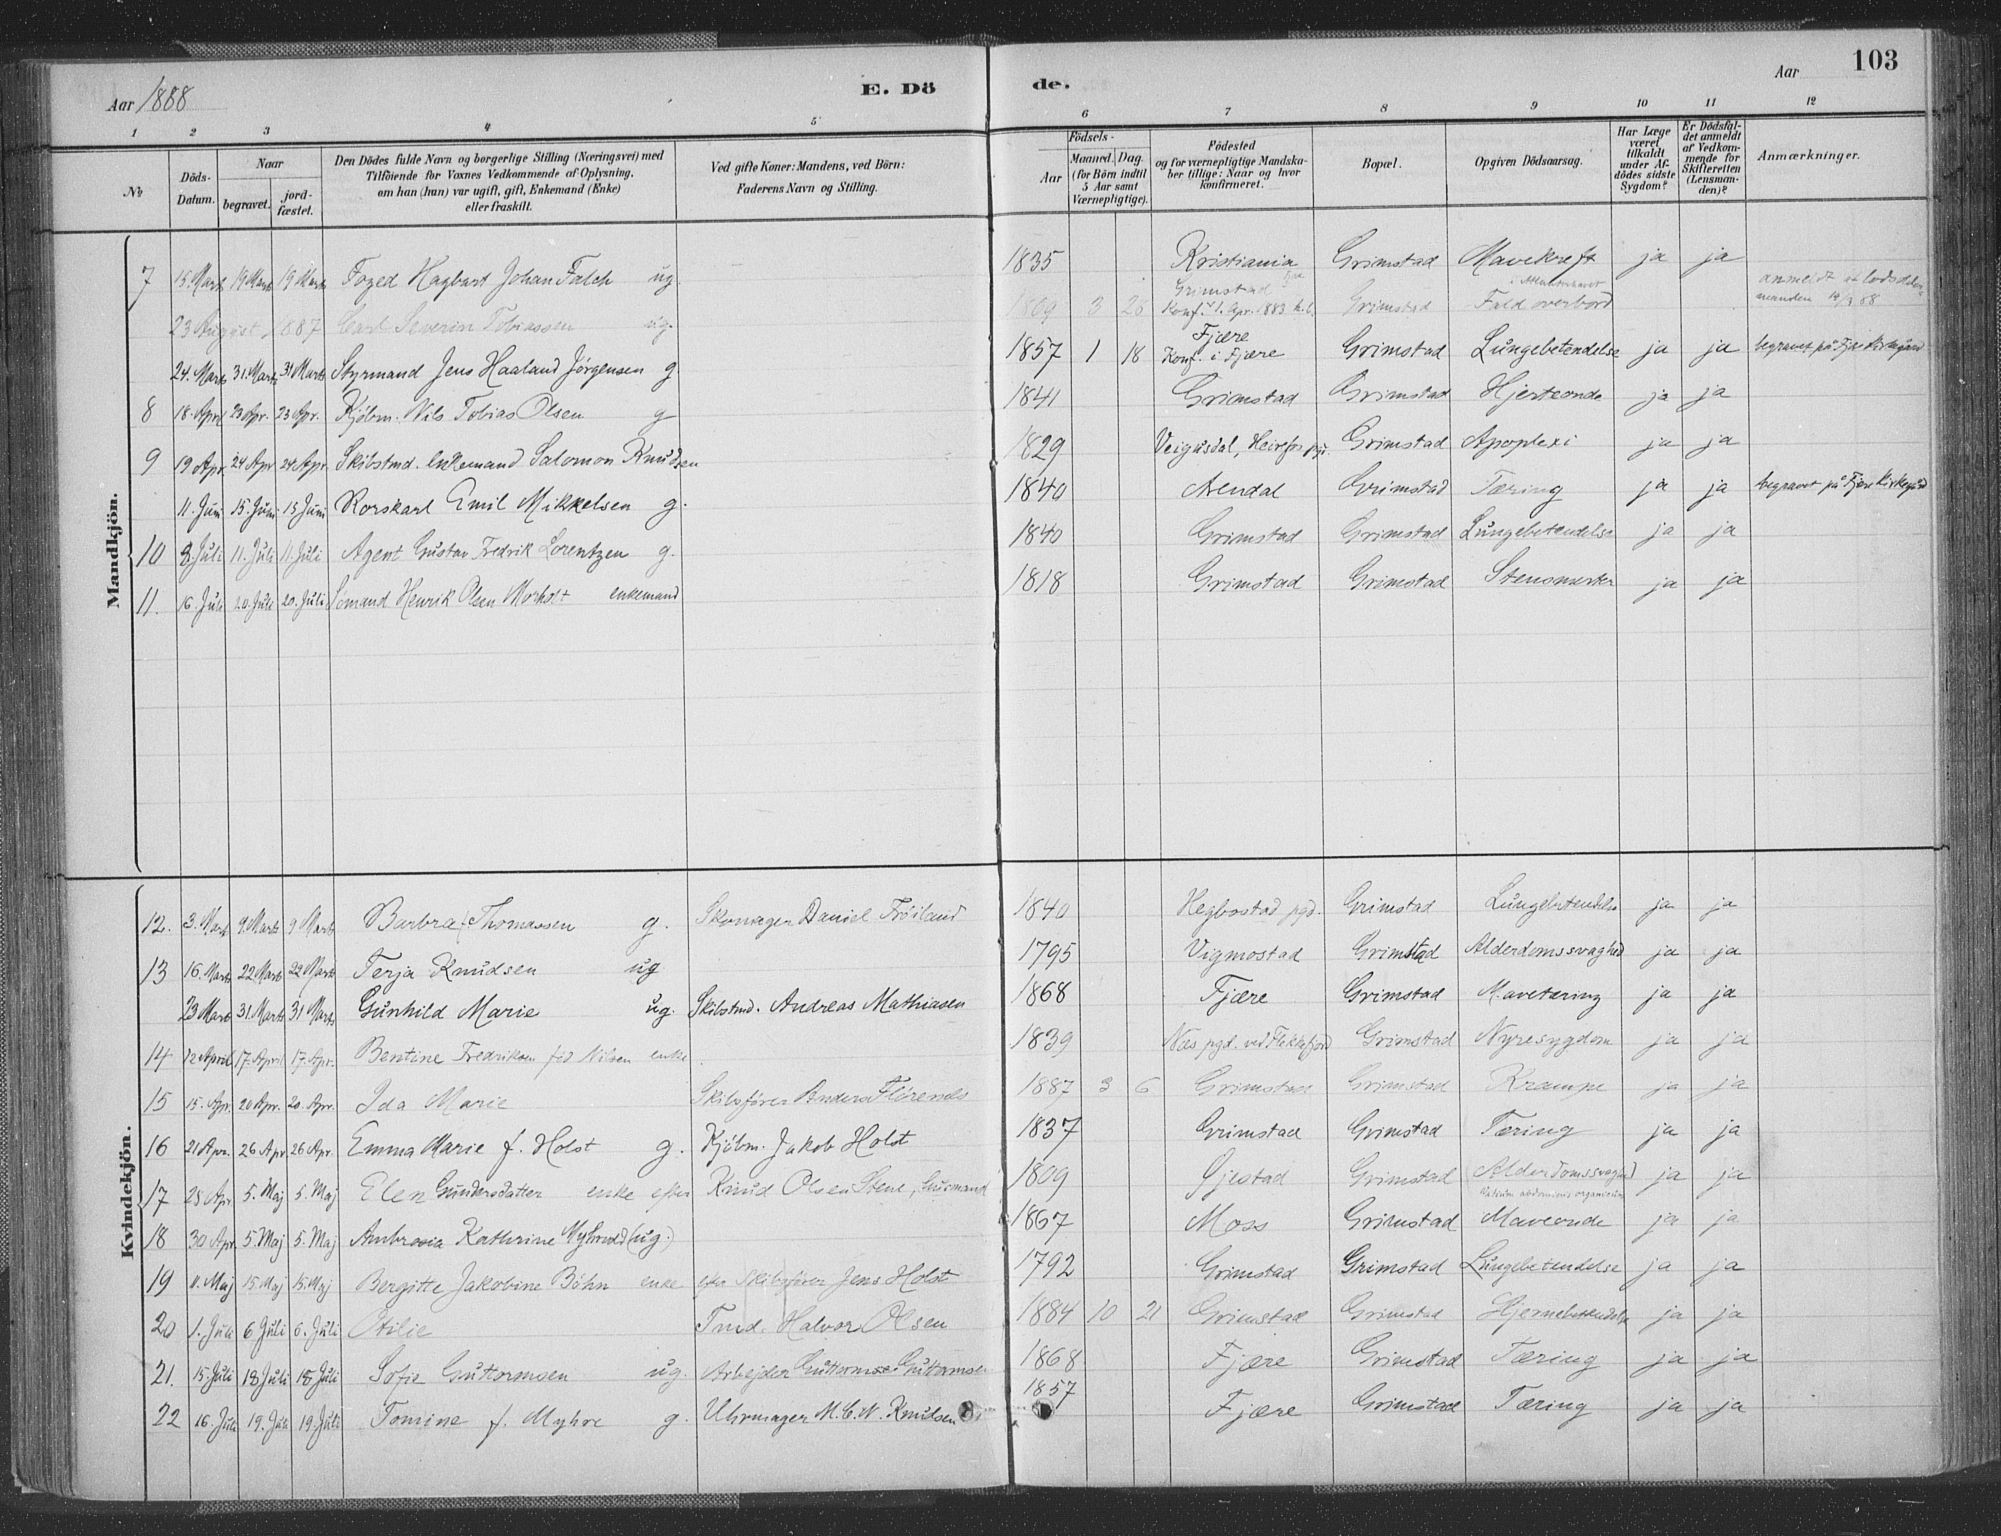 Aar 1888 E. Dö de. Aar 103
1 2 3 4 5 6 7 8 9 10 11 12
No Döds-Datum. Naar begravet. jordfæstet. Den Dödes fulde Navn og borgerlige Stilling (Næringsvei) med Tilföiende for Voxnes Vedkommende af Oplysning, om han (hun) var ugift, gift, Enkemand (Enke) eller fraskilt. Ved gifte Koner: Mandens, ved Börn: Faderens Navn og Stilling. Födsels- Aar Maaned. Dag. (for Börn indtil 5 Aar samt Værnepligtige). Födested og for værnepligtige Mandskaber tillige: Naar og hvor konfirmeret. Bopæl. Opgiven Dödsaarsag. Har Læge været tilkaldt under Afdödes sidste Sygdom? Er Dödsfaldet anmeldt af Vedkommende for Skifteretten (Lensmanden)? Anmærkninger.
Mandkjön.
7 15. Marts 19 Marts 19 Marts Foged Hagbart Johan Falch ug. 1835 Kristiania Grimstad Mavekreft ja ja
23 August 1887 Carl Severin Tobiassen ug. 1869 3 28 Grimstad Konf. 1. Apr. 1883 Grimstad Fald overbord i Atlanterhavet
24. Marts 31. Marts 31 Marts Styrmand Jens Haaland Jørgensen g. 1857 1 18 Fjære Konf. i Fjære Grimstad Lungebetendelse ja ja begravet på Fjære Kirkegård
8 18. April 23 Apr. 23 Apr. Kjøbm. Nils Tobias Olsen g 1841 Grimstad Grimstad Hjerteonde ja ja
9 19 Apr. 24 Apr 24 Apr. Skibstmd. Enkemand Salomon Knudsen 1829 Veigusdal, Grimstad Apoplexi ja ja
11. Juni 15. Juni 15 Juni Rorskarl Emil Mikkelsen g. 1840 Arendal Grimstad Tæring ja ja begravet på Fjære Kirkegård
10 8. Juli 11. Juli 11. Juli Agent Gustav Fredrik Lorentzen g. 1840 Grimstad Grimstad Lungebetendelse ja ja
11. 16. Juli 20. Juli 20. Juli Sømand Henrik Olsen Morholt enkemand 1818 Grimstad Grimstad Stensmerter ja ja
Kvindekjön.
12. 3. Mart 9. Marts 9 Marts Barbra f. Thomassen g. Skomager Daniel Frøiland 1840 Hegbostad pgd. Grimstad Lungebetendelse ja ja
13 16. Marts 22 Marts 22 Marts Terja Knudsen ug 1795 Vigmostad Grimstad Alderdomssvaghed ja ja
23 Mart 31. Marts 31 Marts Gunhild Marie ug. Skibstmd. Andreas Mathiasen 1868 Fjære Grimstad Mavetæring ja ja
14 12 April 17. April 17. Apr. Bentine Fredriksen fød Nilsen enke 1839 Næs pgd. ved Flekkefjord Grimstad Nyresygdom ja ja
15 15. Apr. 20 Apr. 20. Apr. Ida Marie Skibsfører Anders Florends 1887 3 6 Grimstad Grimstad Krampe ja ja
16 21 Apr. 26 Apr 26 Apr. Emma Marie f. Holst g. Kjöbm. Jakob Holst 1837 Grimstad Grimstad Tæring ja ja
17 28 Apr 5. Maj 5. Maj Elen Gundersdatter enke efter Knud Olsen Stene, Husmand 1809 Øjestad Grimstad Alderdomssvaghed ja ja
18 30 Apr 5. Maj 5. Maj Ambrosia Kathrine Myhrvold (ug.) 1867 Moss Grimstad Maveonde ja ja
19 11. Maj 15. Maj 15. Maj Bergitte Jakobine Böhn enke efter Skibsfører Jens Holst 1792 Grimstad Grimstad Lungebetendelse ja ja
20 1. Juli 6 Juli 6. Juli Otilie Tmd. Halvor Olsen 1884 10 21 Grimstad Grimstad Hjernebetendelse ja ja
21. 15. Juli 18 Juli 18 Juli Sofie Guttormsen ug. Arbejder Guttorm Guttormsen 1868 Fjære Grimstad Tæring ja ja
22 16. Juli 19. Juli 19. Juli Tomine f. Myhre g. Uhrmager M. C. N. Knutsen 1857 Fjære Grimstad Tæring ja ja